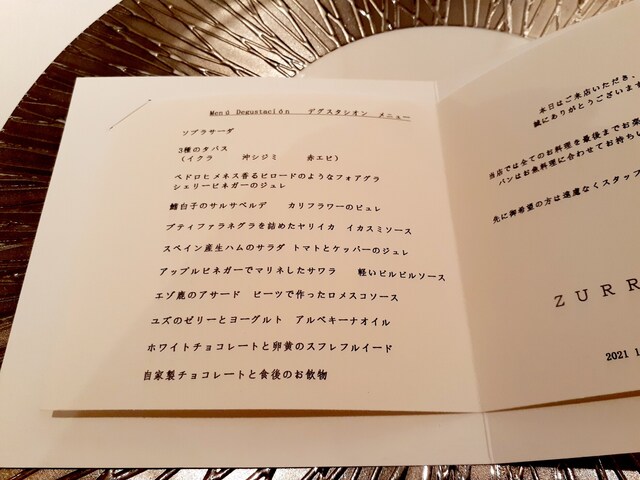 Menú Degustación　デグスタシオン　メニュー
ソブラサーダ
3種のタパス
（イクラ　　沖シジミ　　赤エビ）
ペドロヒメネス香るビロードのようなフォアグラ
シェリービネガーのジュレ
鱈白子のサルサベルデ　　カリフラワーのピュレ
ブティファラネグラを詰めたヤリイカ　イカスミソース
スペイン産生ハムのサラダ　トマトとケッパーのジュレ
アップルビネガーでマリネしたサワラ　　軽いピルピルソース
エゾ鹿のアサード　ビーツで作ったロメスコソース
ユズのゼリーとヨーグルト　アルベキーナオイル
ホワイトチョコレートと卵黄のスフレフルイード
自家製チョコレートと食後のお飲物
本日はご来店いただき、
誠にありがとうございます
当店では全てのお料理を最後までお楽
パンはお魚料理に合わせてお持ちい
先に御希望の方は遠慮なくスタッフ
ZURR
2021 1